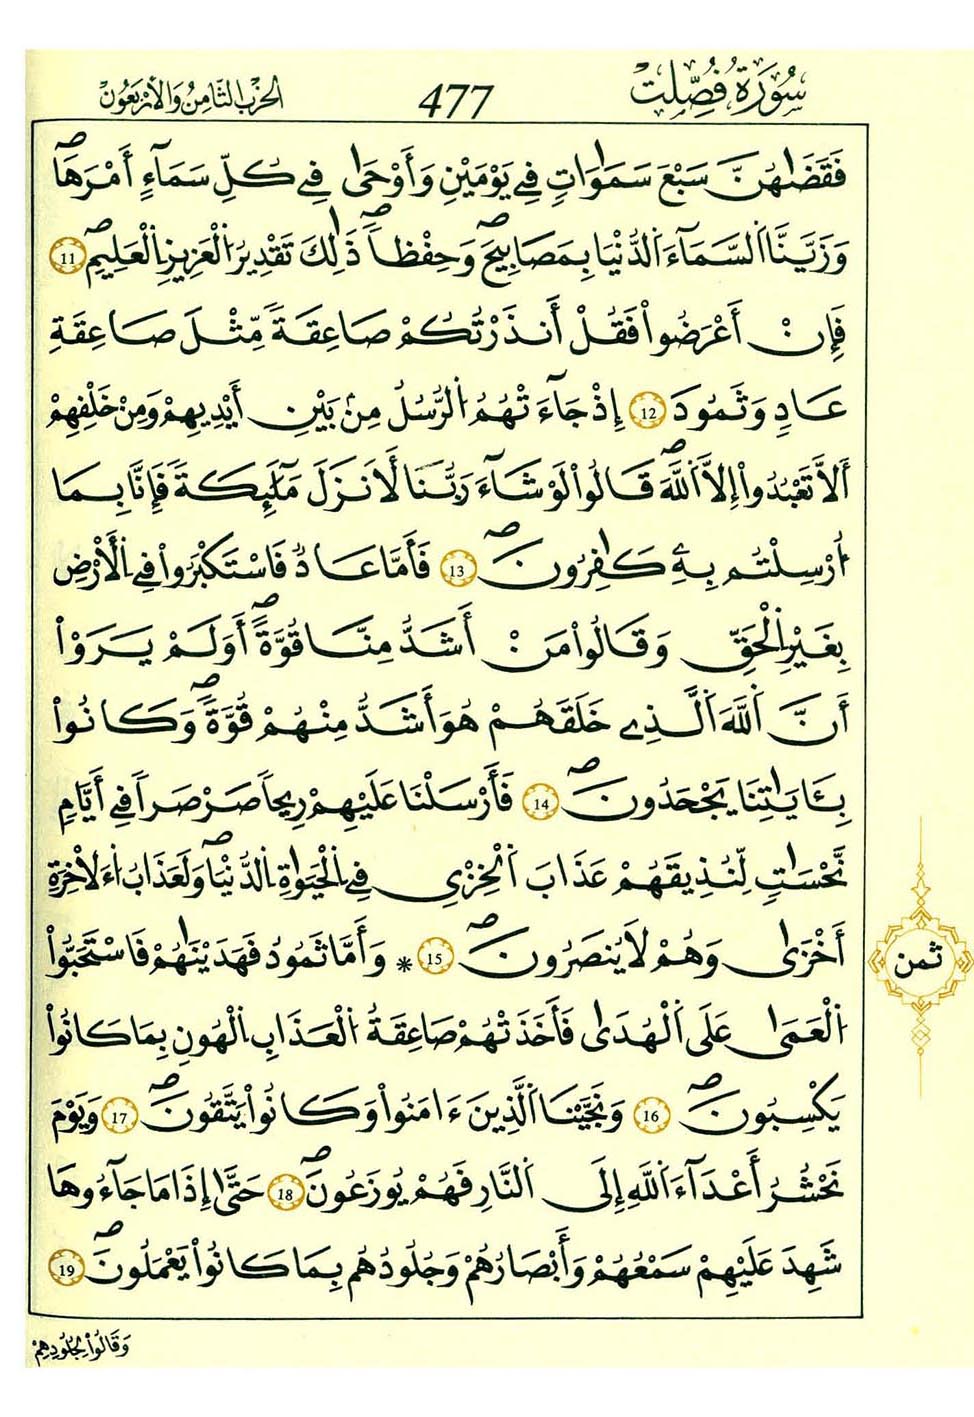 سُورَةُ فُصِّلَتْ
477
الحِزْبُ الثَّامِنُ وَالأَرْبَعُونْ
فَقَضَىٰهُنَّ سَبْعَ سَمَٰوَاتٍ فِے يَوْمَيْنِ وَأَوْحَىٰ فِے كُلِّ سَمَآءٍ أَمْرَهَاۖ
وَزَيَّنَّا اَ۬لسَّمَآءَ اَ۬لدُّنْيَا بِمَصَٰبِيحَۖ وَحِفْظاًۖ ذَٰلِكَ تَقْدِيرُ اُ۬لْعَزِيزِ اِ۬لْعَلِيمِۖ 11
فَإِنْ أَعْرَضُواْ فَقُلْ أَنذَرْتُكُمْ صَاعِقَةً مِّثْلَ صَاعِقَةِ
عَادٍ وَثَمُودَ 12 إِذْ جَآءَتْهُمُ اُ۬لرُّسُلُ مِنۢ بَيْنِ أَيْدِيهِمْ وَمِنْ خَلْفِهِمْ
أَلَّا تَعْبُدُواْ إِلَّا اَ۬للَّهَۖ قَالُواْ لَوْ شَآءَ رَبُّنَا لَأَنزَلَ مَلَٰٓئِكَةً فَإِنَّا بِمَا
أُرْسِلْتُم بِهِۦ كَٰفِرُونَۖ 13 فَأَمَّا عَادٌ فَاسْتَكْبَرُواْ فِے اِ۬لْأَرْضِ
بِغَيْرِ اِ۬لْحَقِّ وَقَالُواْ مَنْ أَشَدُّ مِنَّا قُوَّةًۖ أَوَلَمْ يَرَوْاْ
أَنَّ اَ۬للَّهَ اَ۬لَّذِے خَلَقَهُمْ هُوَ أَشَدُّ مِنْهُمْ قُوَّةًۖ وَكَانُواْ
بِـَٔايَٰتِنَا يَجْحَدُونَۖ 14 فَأَرْسَلْنَا عَلَيْهِمْ رِيحاً صَرْصَراً فِے أَيَّامٍ
نَّحْسَاتٍ لِّنُذِيقَهُمْ عَذَابَ اَ۬لْخِزْيِ فِے اِ۬لْحَيَوٰةِ اِ۬لدُّنْيَاۖ وَلَعَذَابُ اُ۬لَاخِرَةِ
أَخْزَىٰ وَهُمْ لَا يُنصَرُونَۖ 15 * وَأَمَّا ثَمُودُ فَهَدَيْنَٰهُمْ فَاسْتَحَبُّواْ
اُ۬لْعَمَىٰ عَلَى اَ۬لْهُدَىٰ فَأَخَذَتْهُمْ صَاعِقَةُ اُ۬لْعَذَابِ اِ۬لْهُونِ بِمَا كَانُواْ
يَكْسِبُونَۖ 16 وَنَجَّيْنَا اَ۬لَّذِينَ ءَامَنُواْ وَكَانُواْ يَتَّقُونَۖ 17 وَيَوْمَ
نَحْشُرُ أَعْدَآءَ اَ۬للَّهِ إِلَى اَ۬لنَّارِ فَهُمْ يُوزَعُونَۖ 18 حَتَّىٰ إِذَا مَا جَآءُوهَا
شَهِدَ عَلَيْهِمْ سَمْعُهُمْ وَأَبْصَٰرُهُمْ وَجُلُودُهُم بِمَا كَانُواْ يَعْمَلُونَۖ 19
ثمن
وَقَالُواْ لِجُلُودِهِمْ